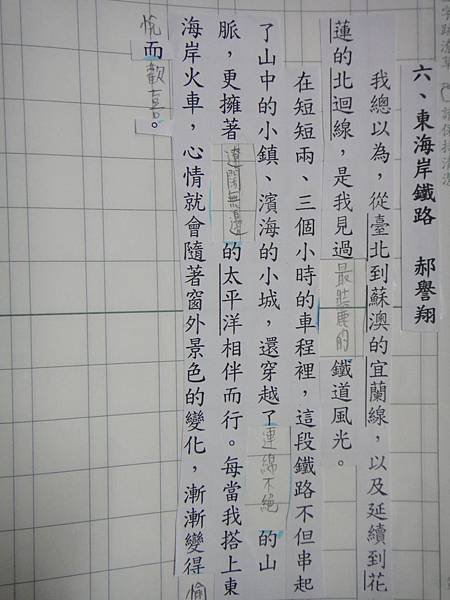 六、東海岸鐵路　郝譽翔
我總以為，從臺北到蘇澳的宜蘭線，以及延續到花
蓮的北迴線，是我見過最壯麗的鐵道風光。
在短短兩、三個小時的車程裡，這段鐵路不但串起
了山中的小鎮、濱海的小城，還穿越了連綿不絕的山
脈，更擁著遼闊無邊的太平洋相伴而行。每當我搭上東
海岸火車，心情就會隨著窗外景色的變化，漸漸變得愉
悅而歡喜。